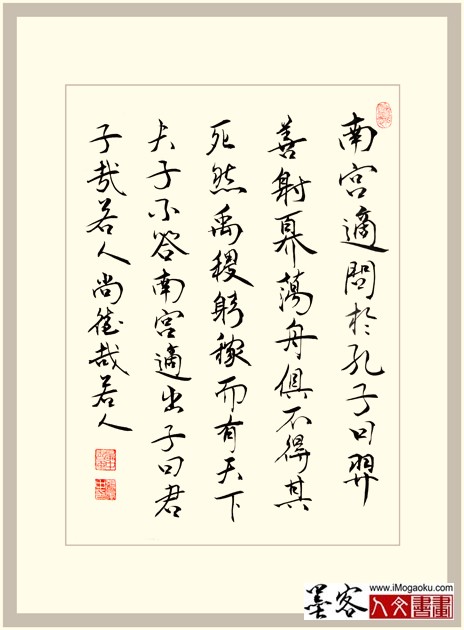 南宮適問於孔子曰羿
善射奡蕩舟俱不得其
死然禹稷躬稼而有天下
夫子不答南宮適出子曰君
子哉若人尚德哉若人
墨客
www.iMogaoku.com
人文書畫